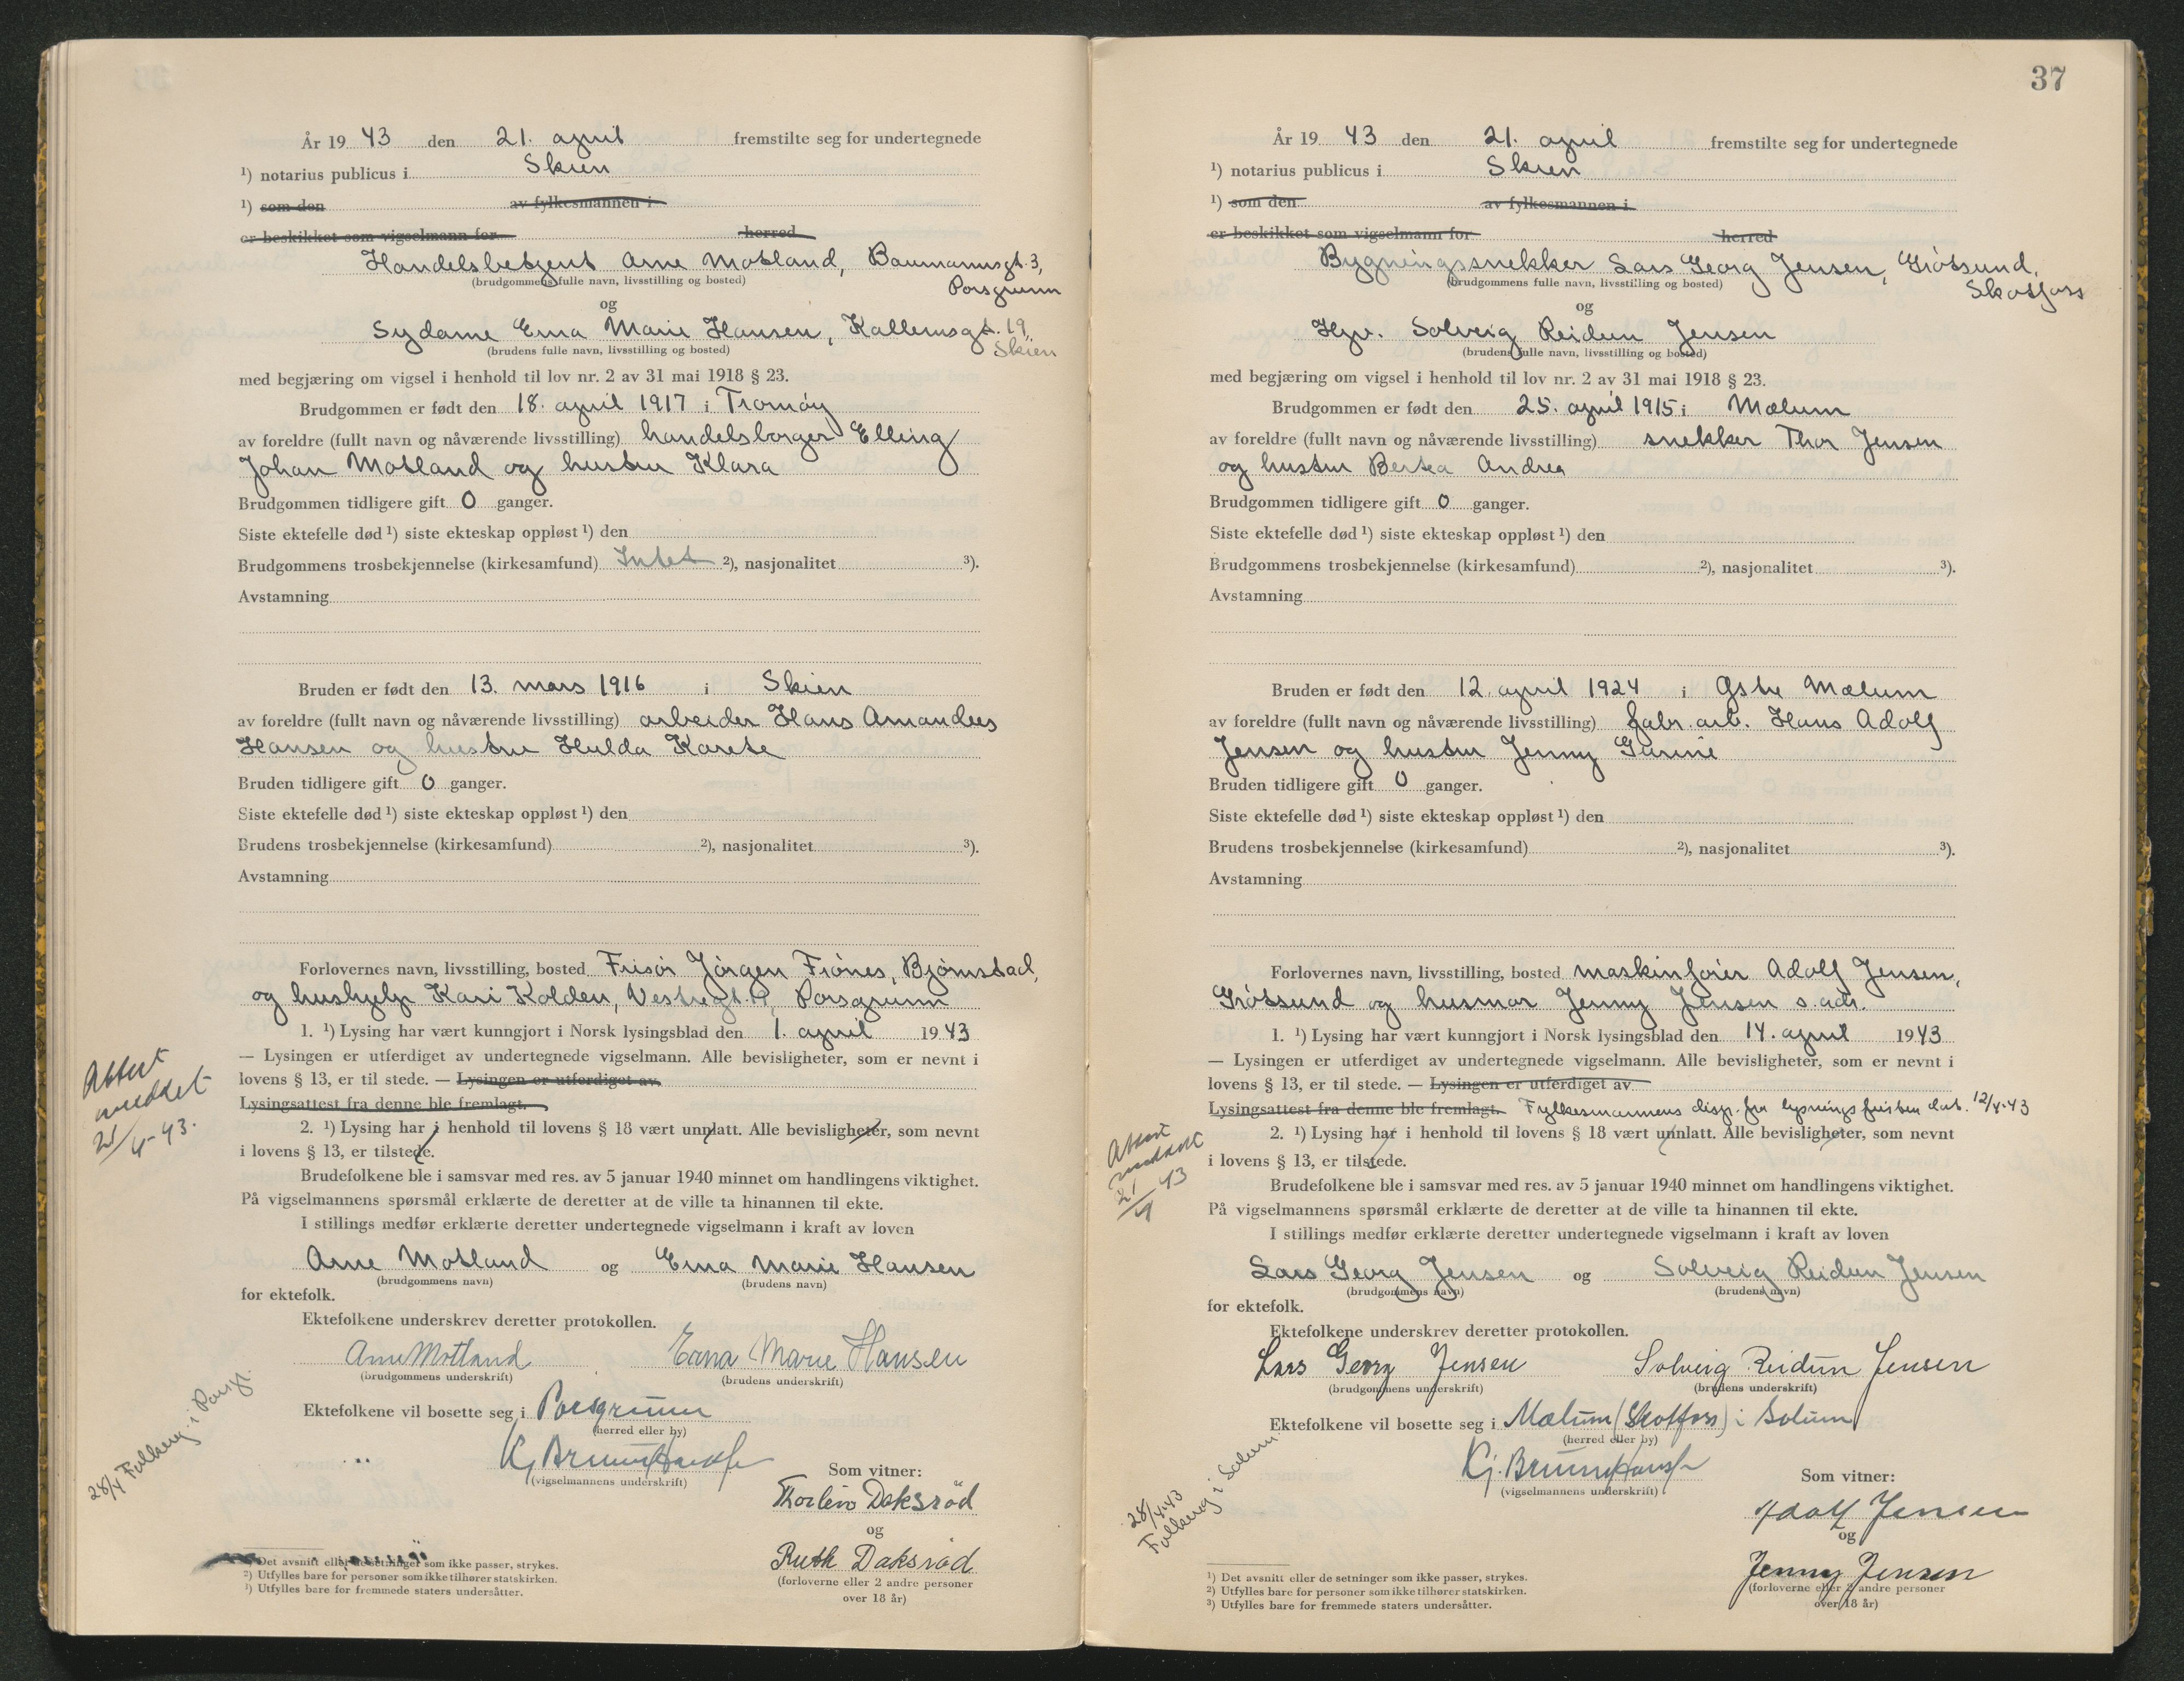 År 19 43 den 21. april fremstilte seg for undertegnede
¹) notarius publicus i Skien
¹) som den av fylkesmannen i
er beskikket som vigselmann for herred
Handelsbetjent Arne Motland, Baumannsgt. 3,
(brudgommens fulle navn, livsstilling og bosted)
Porsgrunn
og
Sydame Erna Marie Hansen, Kallemsgt. 19,
Skien
(brudens fulle navn, livsstilling og bosted)
med begjæring om vigsel i henhold til lov nr. 2 av 31 mai 1918 § 23.
Brudgommen er født den 18. april 1917 i Tromøy
av foreldre (fullt navn og nåværende livsstilling) handelsborger Elling
Johan Motland og hustru Klara
Brudgommen tidligere gift 0 ganger.
Siste ektefelle død ¹) siste ekteskap oppløst ¹) den
Brudgommens trosbekjennelse (kirkesamfund) Intet ²), nasjonalitet ³).
Avstamning
Bruden er født den 13. mars 1916 i Skien
av foreldre (fullt navn og nåværende livsstilling) arbeider Hans Amandus
Hansen og hustru Hulda Karete
Bruden tidligere gift 0 ganger.
Siste ektefelle død ¹) siste ekteskap oppløst ¹) den
Brudens trosbekjennelse (kirkesamfund) ²), nasjonalitet ³).
Avstamning
Forlovernes navn, livsstilling, bosted Frisør Jørgen Frønes, Bjørnstad,
og hushjelp Kari Kolden, Vestregt. 9, Porsgrunn
1. ¹) Lysing har vært kunngjort i Norsk lysingsblad den 1. april 1943
— Lysingen er utferdiget av undertegnede vigselmann. Alle bevisligheter, som er nevnt i
lovens § 13, er til stede. — Lysingen er utferdiget av
Lysingsattest fra denne ble fremlagt.
Attest
meddelt
21/4-43.
2. ¹) Lysing har i henhold til lovens § 18 vært unnlatt. Alle bevisligheter, som nevnt
i lovens § 13, er tilstede.
Brudefolkene ble i samsvar med res. av 5 januar 1940 minnet om handlingens viktighet.
På vigselmannens spørsmål erklærte de deretter at de ville ta hinannen til ekte.
I stillings medfør erklærte deretter undertegnede vigselmann i kraft av loven
Arne Motland og Erna Marie Hansen
(brudgommens navn) (brudens navn)
for ektefolk.
Ektefolkene underskrev deretter protokollen.
Arne Motland Erna Marie Hansen
(brudgommens underskrift) (brudens underskrift)
Ektefolkene vil bosette seg i Porsgrunn
(herred eller by)
28/4 Folkereg i Porsgr.
Kj. Bruun Hansen
(vigselmannens underskrift)
Som vitner:
Thorleiv Daksrød
og
Ruth Daksrød
(forloverne eller 2 andre personer
over 18 år)
¹) Det avsnitt eller de setninger som ikke passer, strykes.
²) Utfylles bare for personer som ikke tilhører statskirken.
³) Utfylles bare for fremmede staters undersåtter.
37
År 19 43 den 21. april fremstilte seg for undertegnede
¹) notarius publicus i Skien
¹) som den av fylkesmannen i
er beskikket som vigselmann for herred
Bygningssnekker Lars Georg Jensen, Grøtsund,
Skotfoss
(brudgommens fulle navn, livsstilling og bosted)
og
Hjv. Solveig Reidun Jensen
(brudens fulle navn, livsstilling og bosted)
med begjæring om vigsel i henhold til lov nr. 2 av 31 mai 1918 § 23.
Brudgommen er født den 25. april 1915 i Mælum
av foreldre (fullt navn og nåværende livsstilling) snekker Thor Jensen
og hustru Bertea Andrea
Brudgommen tidligere gift 0 ganger.
Siste ektefelle død ¹) siste ekteskap oppløst ¹) den
Brudgommens trosbekjennelse (kirkesamfund) ²), nasjonalitet ³).
Avstamning
Bruden er født den 12. april 1924 i Østre Mælum
av foreldre (fullt navn og nåværende livsstilling) fabr. arb. Hans Adolf
Jensen og hustru Jenny Gurine
Bruden tidligere gift 0 ganger.
Siste ektefelle død ¹) siste ekteskap oppløst ¹) den
Brudens trosbekjennelse (kirkesamfund) ²), nasjonalitet ³).
Avstamning
Forlovernes navn, livsstilling, bosted maskinfører Adolf Jensen,
Grøtsund og husmor Jenny Jensen s. adr.
1. ¹) Lysing har vært kunngjort i Norsk lysingsblad den 14. april 1943
— Lysingen er utferdiget av undertegnede vigselmann. Alle bevisligheter, som er nevnt i
lovens § 13, er til stede. — Lysingen er utferdiget av
Lysingsattest fra denne ble fremlagt. Fylkesmannens disp. fra lysningsfristen dat. 12/4-43
Attest
meddelt
21/4 43
2. ¹) Lysing har i henhold til lovens § 18 vært unnlatt. Alle bevisligheter, som nevnt
i lovens § 13, er tilstede.
Brudefolkene ble i samsvar med res. av 5 januar 1940 minnet om handlingens viktighet.
På vigselmannens spørsmål erklærte de deretter at de ville ta hinannen til ekte.
I stillings medfør erklærte deretter undertegnede vigselmann i kraft av loven
Lars Georg Jensen og Solveig Reidun Jensen
(brudgommens navn) (brudens navn)
for ektefolk.
Ektefolkene underskrev deretter protokollen.
Lars Georg Jensen Solveig Reidun Jensen
(brudgommens underskrift) (brudens underskrift)
Ektefolkene vil bosette seg i Mælum (Skotfoss) i Solum
(herred eller by)
28/4-43
Folkereg i Solum
Kj. Bruun Hansen
(vigselmannens underskrift)
Som vitner:
Adolf Jensen
og
Jenny Jensen
(forloverne eller 2 andre personer
over 18 år)
¹) Det avsnitt eller de setninger som ikke passer, strykes.
²) Utfylles bare for personer som ikke tilhører statskirken.
³) Utfylles bare for fremmede staters undersåtter.